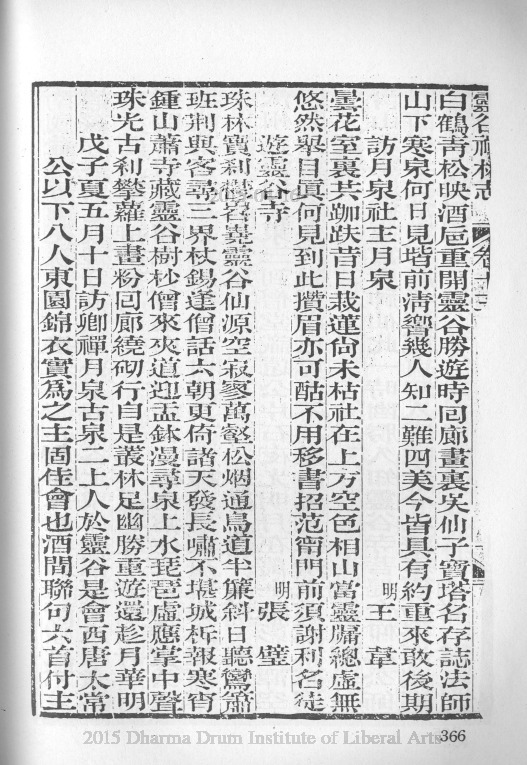 靈谷禪林志 卷十三
白鶴青松映酒卮重開靈谷勝遊時回廊畫裏吳仙子寶塔名存誌法師
山下寒泉何日見堦前清響幾人知二難四美今皆具有約重來敢後期
訪月泉社主月泉 明王韋
曇花室裏共跏趺昔日栽蓮尚未枯社在上方空色相山當靈牖總虛無
悠然舉目眞何見到此攢眉亦可酤不用移書招范甯門前須謝利名徒
遊靈谷寺 明張璧
珠林寶刹岧嶤靈谷仙源空寂寥萬壑松烟通鳥道半簾斜日聽鸞蕭
班荆與客尋三界杖錫逢僧話六朝更倚諸天發長嘯不堪城柝報寒宵
鍾山蕭寺藏靈谷樹杪僧來夾道迎盂鉢漫尋泉上水琵琶虛應掌中聲
珠光古刹攀蘿上畫粉回廊繞砌行自是叢林足幽勝重遊還趁月華明
戊子夏五月十日訪卿禪月泉古泉二上人於靈谷是會西唐太常
公以下八人東園錦衣實爲之主固佳會也酒閒聯句六首付主
2015 Dharma Drum Institute of Liberal Arts
366